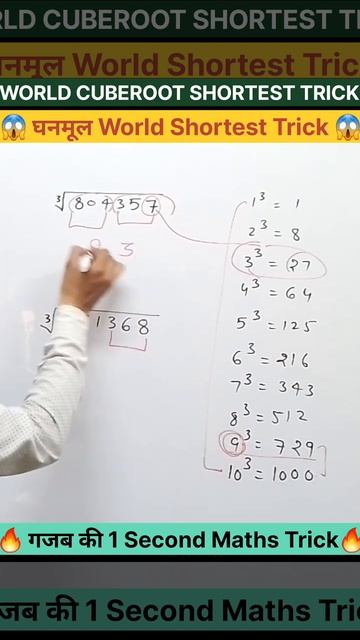 RLD CUBEROOT SHORTEST TR
घनमूल World Shortest Tric
WORLD CUBEROOT SHORTEST TRICK
😱 घनमूल World Shortest Trick 😱
∛804357
9 3
∛ 1368
1³ = 1
2³ = 8
3³ = 27
4³ = 64
5³ = 125
6³ = 216
7³ = 343
8³ = 512
9³ = 729
10³ = 1000
🔥 गजब की 1 Second Maths Trick 🔥
जब की 1 Second Maths Tri